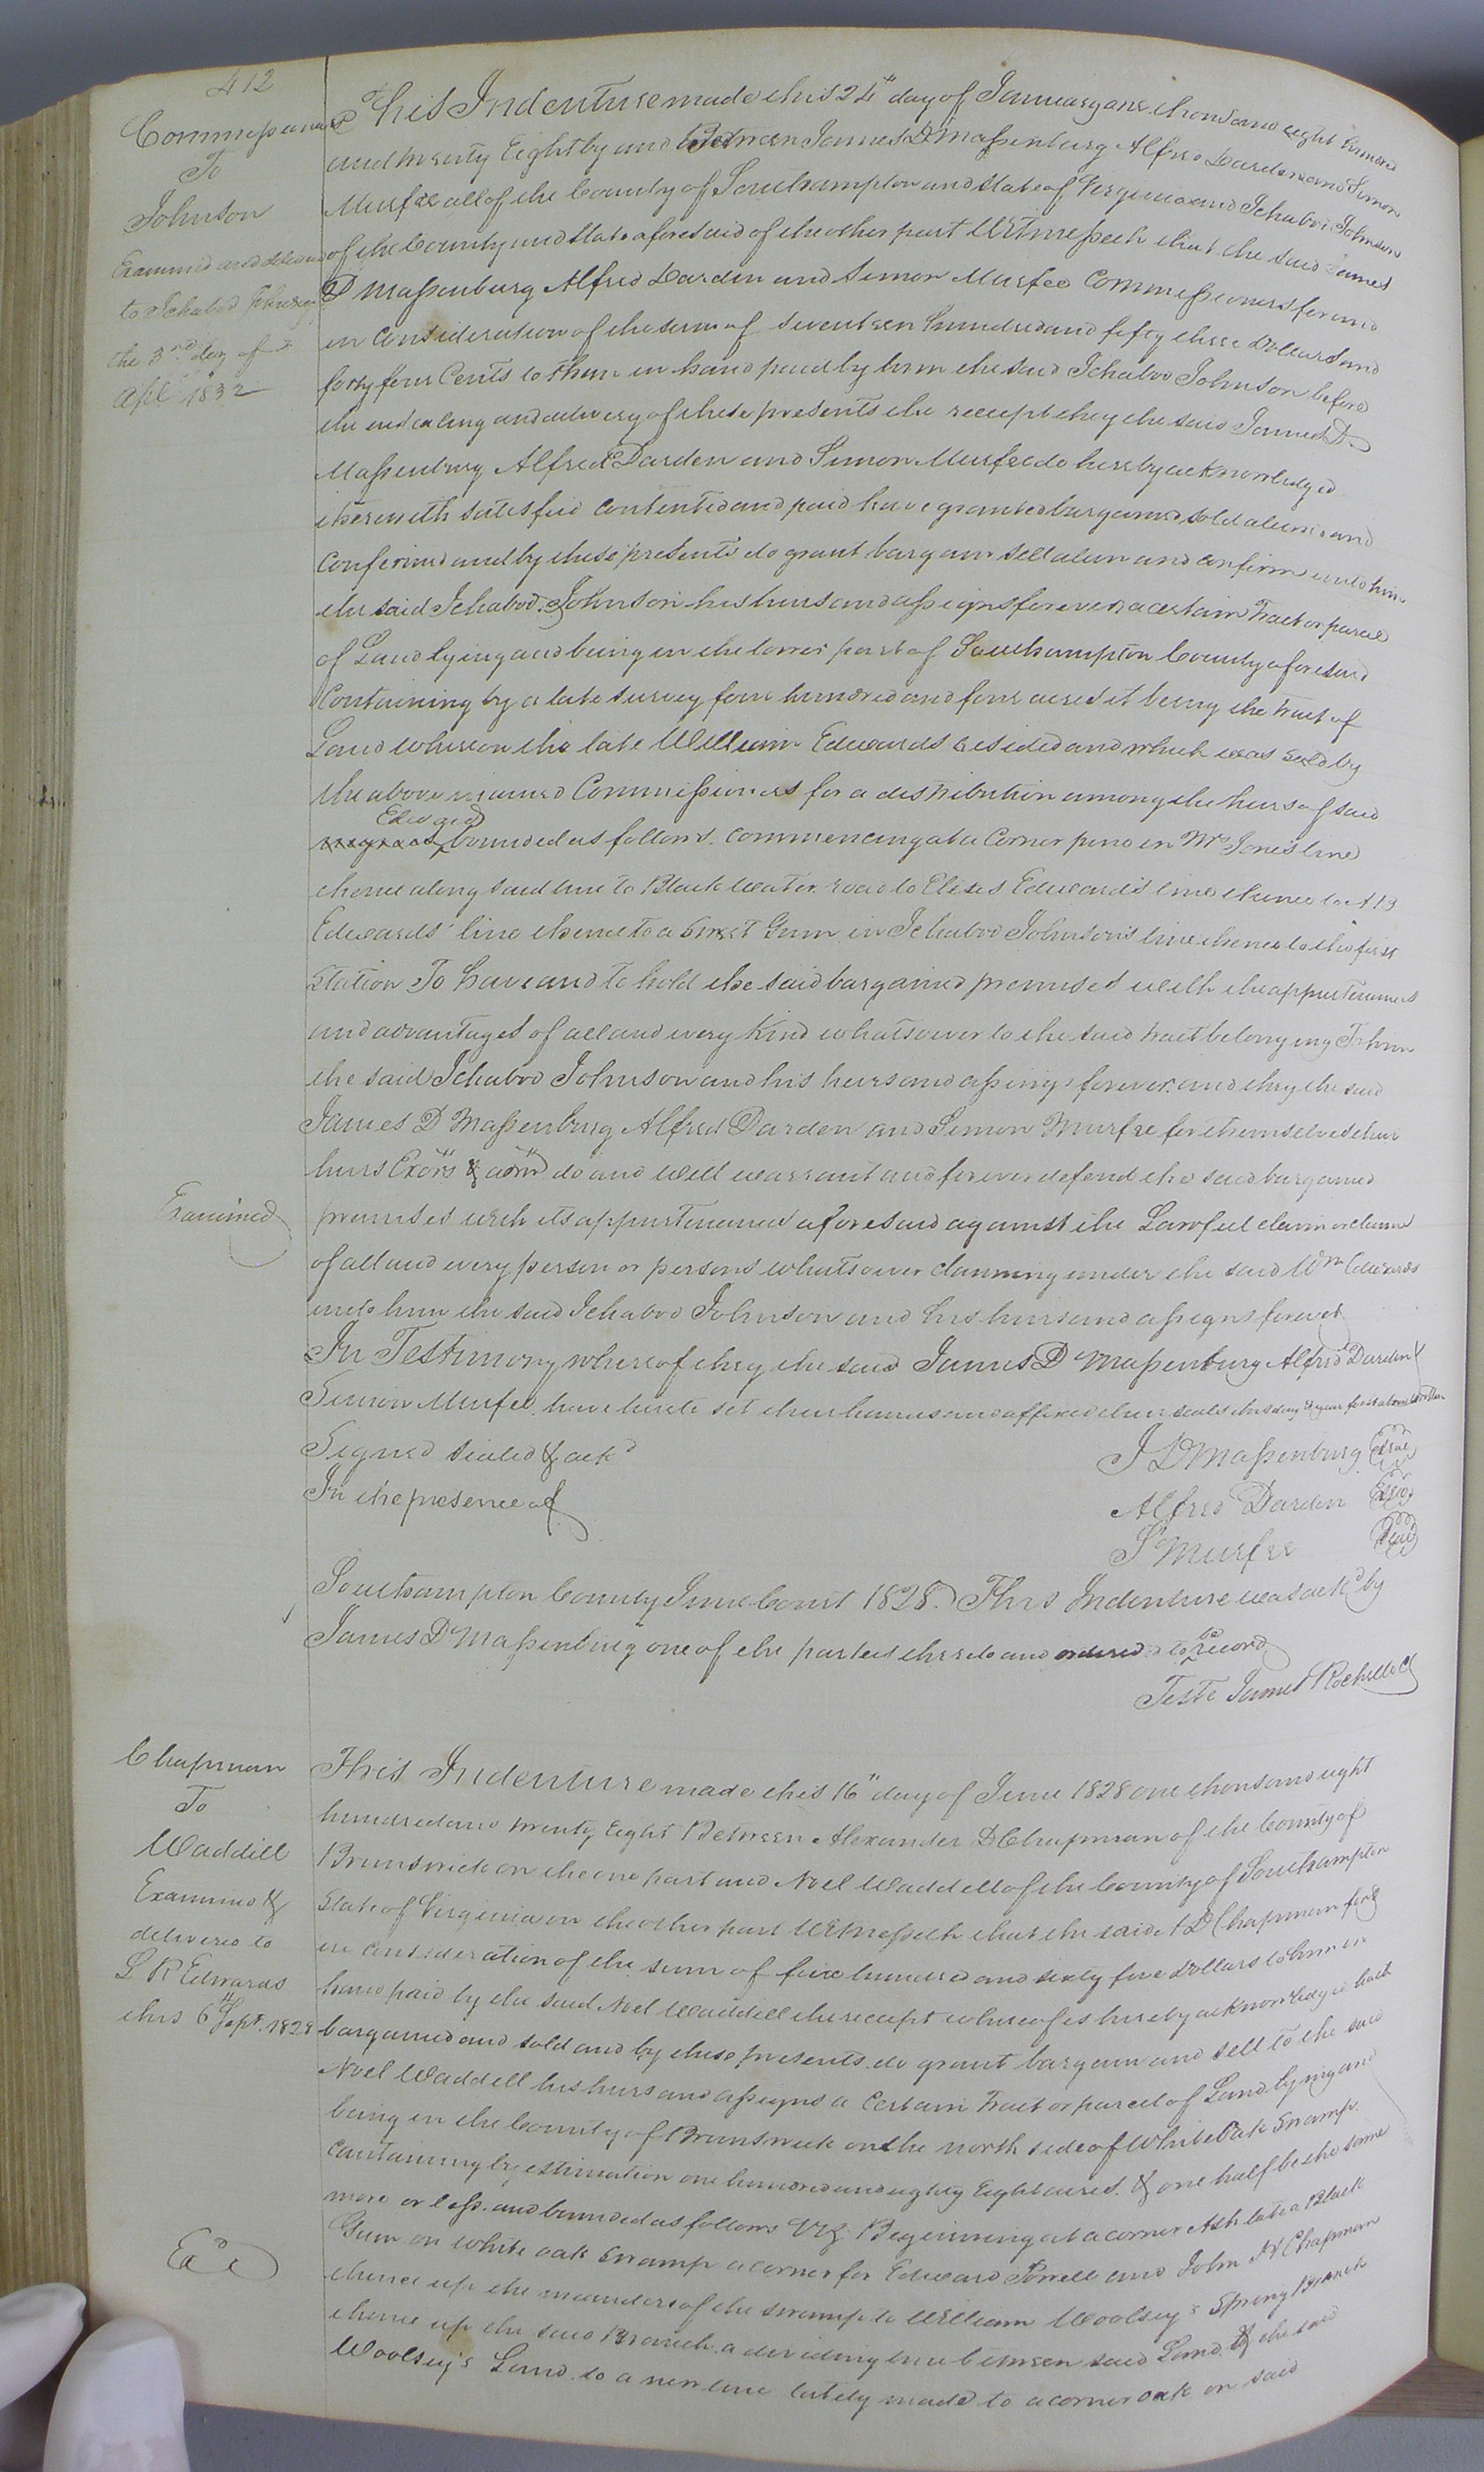 412
Commissioners
To
Johnson
Examined and delivered
to Ichabod Johnson
the 3rd day of
Apl 1832
This Indenture made this 24" day of January one thousand eight hundred
and twenty Eight by and Between James D Massenburg Alfred Darden and Simon
Murfee all of the County of Southampton and State of Virginia and Ichabod Johnson
of the County and State aforesaid of the other part Witnesseth that the said James
D Massenburg Alfred Darden and Simon Murfee Commissioners for and
in Consideration of the sum of Seventeen hundred and fifty three Dollars and
forty four Cents to them in hand paid by him the said Ichabod Johnson before
the ensealing and delivery of these presents the receipt they the said James D
Massenburg Alfred Darden and Simon Murfee do hereby acknowledged
therewith satisfied Contented and paid have granted bargained sold aliened and
Confirmed and by these presents do grant bargain sell alien and confirm unto him
the said Ichabod Johnson his heirs and assigns forever a certain Tract or parcel
of Land lying and being in the lower part of Southampton County aforesaid
Containing by a late survey four hundred and four acres it being the Tract of
Land whereon the late William Edwards resided and which was sold by
the above named Commissioners for a distribution among the heirs of said
Edwards
bounded as follows. Commencing at a Corner pine in Mrs Jones line
thence along said line to Black water road to Elises Edwards line thence to A B
Edwards' line thence to a Sweet Gum in Ichabod Johnson's line thence to the first
Station To have and to hold the said bargained premises with the appurtenances
and advantages of all and every Kind whatsoever to the said Tract belonging To him
the said Ichabod Johnson and his heirs and assings forever. and they the said
James D Massenburg Alfred Darden and Simon Murfee for themselves their
heirs Exors & admrs do and will warrant and forever defend the said bargained
Examined
premises with its appurtenances aforesaid against the Lawful claim or claims
of all and every person or persons whatsoever claiming under the said Wm Edwards
unto him the said Ichabod Johnson and his heirs and assigns forever
In Testimony whereof they the said James D Massenburg Alfred Darden &
Simon Murfee have hereto set their hands and affixed their seals this day & year first above written
Signed Sealed & ackd
In the presence of
J D Massenburg Seal
Alfred Darden Seal
S Murfee Seal
Southampton County June Court 1828. This Indenture was ackd by
James D Massenburg one of the parties thereto and ordered to be record
Teste James Rochelle C
Chapman
To
Waddill
Examined &
delivered to
L R Edwards
this 6" Sept. 1828
This Indenture made this 16" day of June 1828 one thousand eight
hundred and twenty Eight Between Alexander D Chapman of the County of
Brunswick on the one part and Noel Waddell of the County of Southampton
State of Virginia on the other part Witnesseth that the said A D Chapman for &
in consideration of the sum of five hundred and sixty five Dollars to him in
hand paid by the said Noel Waddill the receipt whereof is hereby acknowledged hath
bargained and sold and by these presents do grant bargain and sell to the said
Noel Waddell his heirs and assigns a Certain Tract or parcel of Land lying and
being in the County of Brunswick on the north side of White Oak Swamp.
Containing by estimation one hundred and eighty Eight acres. & one half be the same
more or less. and bounded as follows Viz. Beginning at a corner Ash late a Black
Gum on white oak Swamp a corner for Edward Powell and John W Chapman
thence up the meanders of the swamp to William Woolsey's Spring Branch
thence up the said Branch a deviding line between said Land & the said
Woolsey's Land to a new line lately made to a corner oak on said
Exd